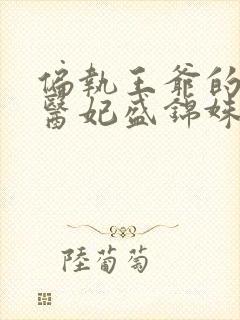 偏執王爺的
醫妃盛錦姝
陸葡萄